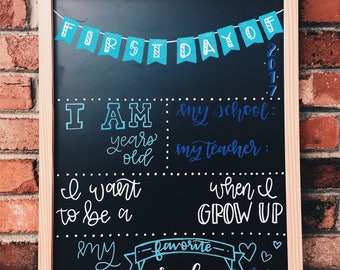 FIRST DAY OF
2017
I AM
years
old
my school:
my teacher:
I want
to be a
when I
GROW UP
my favorite